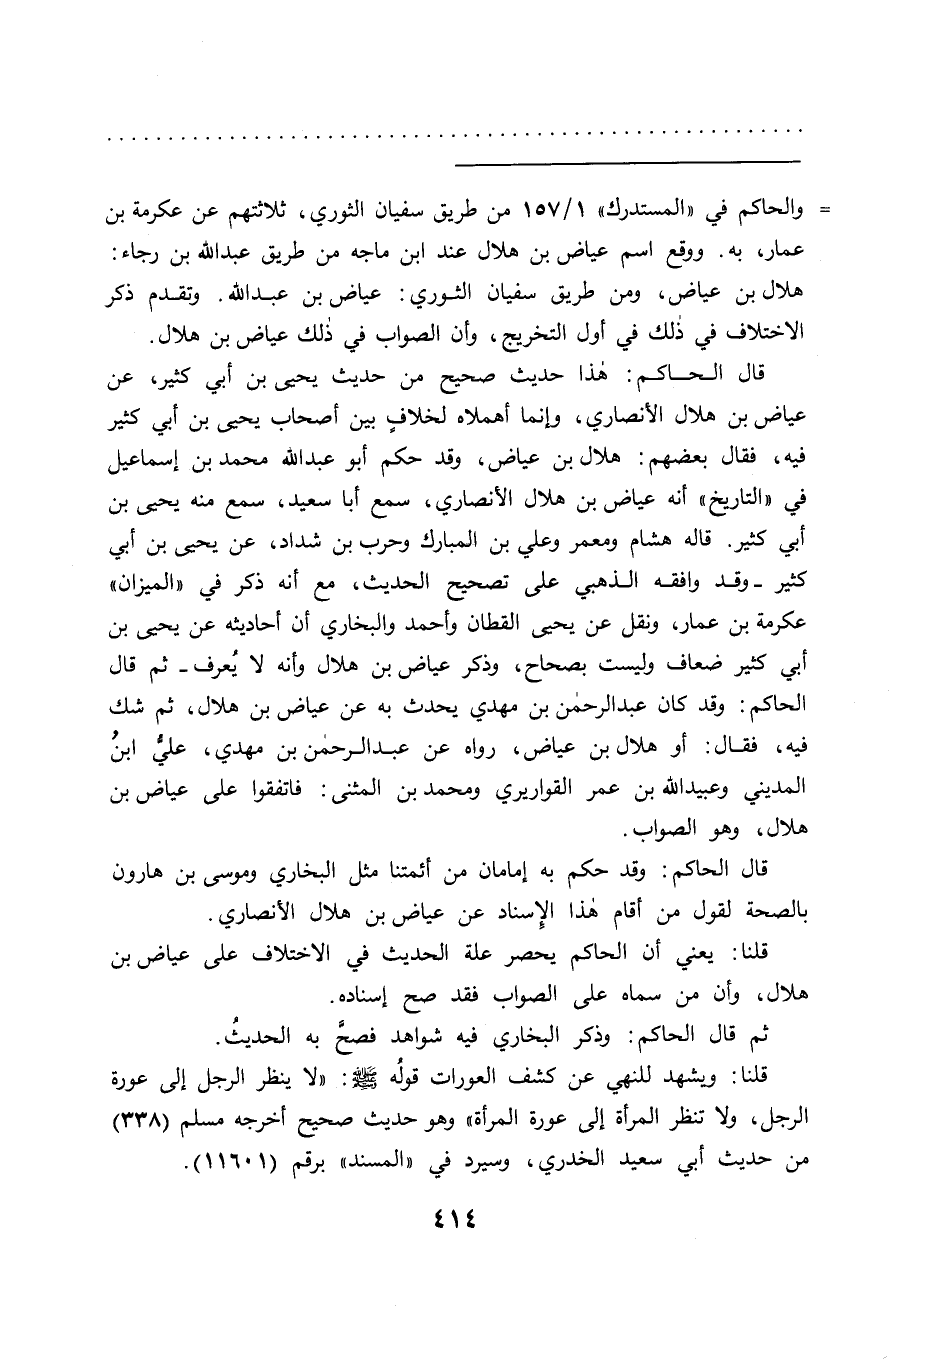 = والحاكم في «المستدرك» ١/١٥٧ من طريق سفيان الثوري، ثلاثتهم عن عكرمة بن
عمار، به. ووقع اسم عياض بن هلال عند ابن ماجه من طريق عبدالله بن رجاء:
هلال بن عياض، ومن طريق سفيان الثوري: عياض بن عبدالله. وتقدم ذكر
الاختلاف في ذٰلك في أول التخريج، وأن الصواب في ذٰلك عياض بن هلال.
قال الحاكم: هٰذا حديث صحيح من حديث يحيى بن أبي كثير، عن
عياض بن هلال الأنصاري، وإنما أهملاه لخلافٍ بين أصحاب يحيى بن أبي كثير
فيه، فقال بعضهم: هلال بن عياض، وقد حكم أبو عبدالله محمد بن إسماعيل
في «التاريخ» أنه عياض بن هلال الأنصاري، سمع أبا سعيد، سمع منه يحيى بن
أبي كثير. قاله هشام ومعمر وعلي بن المبارك وحرب بن شداد، عن يحيى بن أبي
كثير ـ وقد وافقه الذهبي على تصحيح الحديث، مع أنه ذكر في «الميزان»
عكرمة بن عمار، ونقل عن يحيى القطان وأحمد والبخاري أن أحاديثه عن يحيى بن
أبي كثير ضعاف وليست بصحاح، وذكر عياض بن هلال وأنه لا يُعرف ـ ثم قال
الحاكم: وقد كان عبدالرحمٰن بن مهدي يحدث به عن عياض بن هلال، ثم شك
فيه، فقال: أو هلال بن عياض، رواه عن عبدالرحمٰن بن مهدي، عليُّ ابنُ
المديني وعبيدالله بن عمر القواريري ومحمد بن المثنى: فاتفقوا على عياض بن
هلال، وهو الصواب.
قال الحاكم: وقد حكم به إمامان من أئمتنا مثل البخاري وموسى بن هارون
بالصحة لقول من أقام هٰذا الإسناد عن عياض بن هلال الأنصاري.
قلنا: يعني أن الحاكم يحصر علة الحديث في الاختلاف على عياض بن
هلال، وأن من سماه على الصواب فقد صح إسناده.
ثم قال الحاكم: وذكر البخاري فيه شواهد فصحَّ به الحديثُ.
قلنا: ويشهد للنهي عن كشف العورات قولُه ﷺ: «لا ينظر الرجل إلى عورة
الرجل، ولا تنظر المرأة إلى عورة المرأة» وهو حديث صحيح أخرجه مسلم (٣٣٨)
من حديث أبي سعيد الخدري، وسيرد في «المسند» برقم (١١٦٠١).
٤١٤